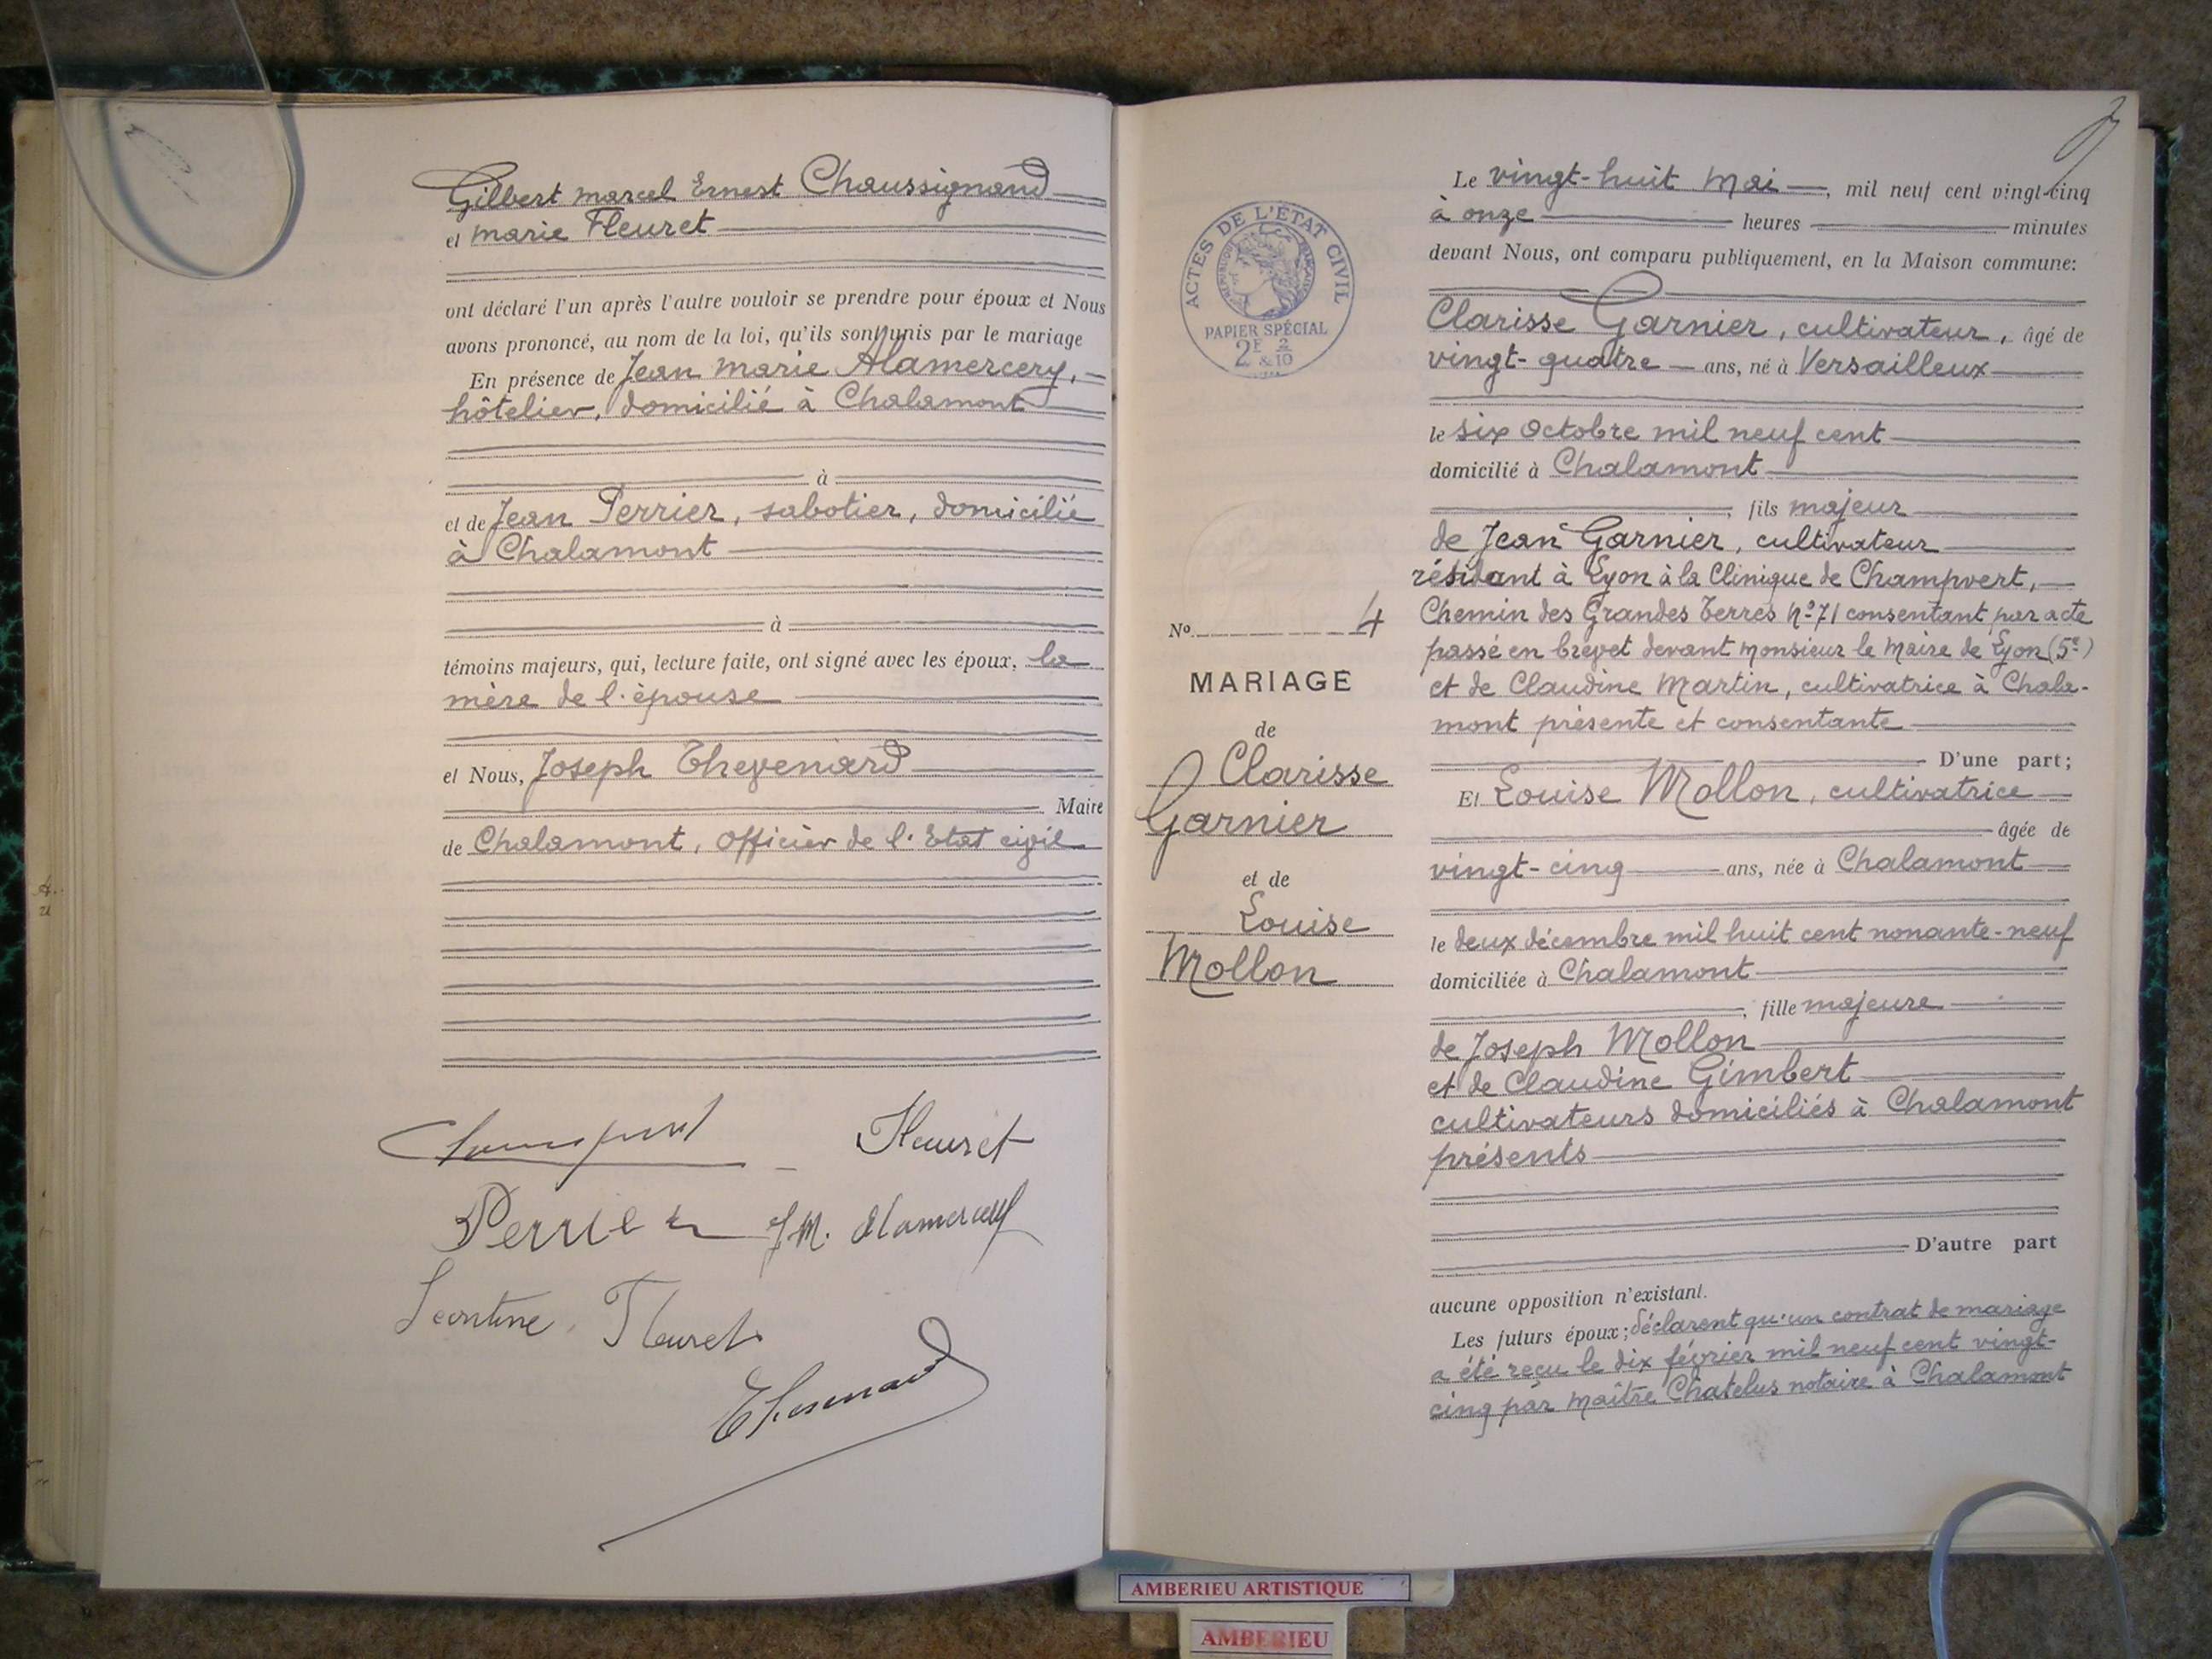 Gilbert marcel Ernest Chaussignand
et marie Fleuret
ont déclaré l'un après l'autre vouloir se prendre pour époux et Nous
avons prononcé, au nom de la loi, qu'ils sont unis par le mariage
En présence de Jean marie Alamercery,
hôtelier, domicilié à Chalamont
à
et de Jean Perrier, sabotier, domicilié
à Chalamont
à
témoins majeurs, qui, lecture faite, ont signé avec les époux, la
mère de l'épouse
et Nous, Joseph Thevenard
Maire
de Chalamont, officier de l'Etat civil
Fleuret
Perrier J.M. Alamercery
Leontine Fleuret
Thevenard
ACTES DE L'ÉTAT CIVIL
RÉPUBLIQUE FRANÇAISE
PAPIER SPÉCIAL
2F & 2/10
No 4
MARIAGE
de
Clarisse
Garnier
et de
Louise
Mollon
Le vingt-huit Mai, mil neuf cent vingt-cinq
à onze heures minutes
devant Nous, ont comparu publiquement, en la Maison commune:
Clarisse Garnier, cultivateur, âgé de
vingt-quatre ans, né à Versailleux
le six Octobre mil neuf cent
domicilié à Chalamont
, fils majeur
de Jean Garnier, cultivateur
résidant à Lyon à la Clinique de Champvert,
Chemin des Grandes Terres No 71 consentant par acte
passé en brevet devant Monsieur le Maire de Lyon (5e)
et de Claudine Martin, cultivatrice à Chala-
mont présente et consentante
D'une part;
Et Louise Mollon, cultivatrice
âgée de
vingt-cinq ans, née à Chalamont
le deux décembre mil huit cent nonante-neuf
domiciliée à Chalamont
, fille majeure
de Joseph Mollon
et de Claudine Gimbert
cultivateurs domiciliés à Chalamont
présents
D'autre part
aucune opposition n'existant.
Les futurs époux; déclarent qu'un contrat de mariage
a été reçu le dix février mil neuf cent vingt-
cinq par Maître Chatelus notaire à Chalamont
AMBERIEU ARTISTIQUE
AMBERIEU